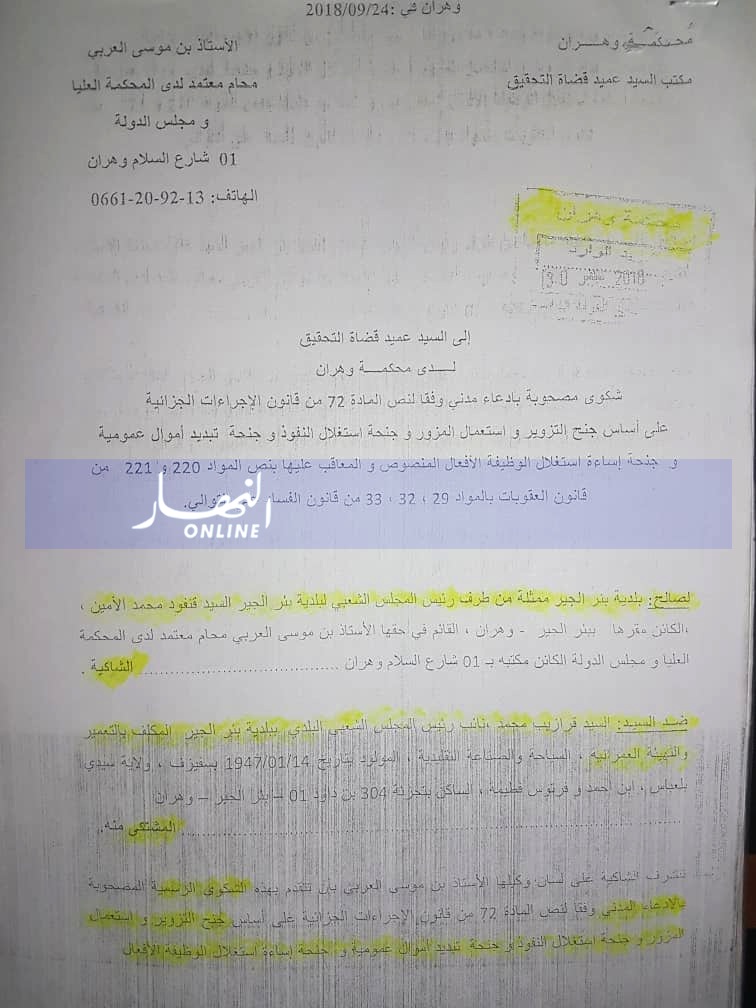 وهران في :2018/09/24
محكمة وهران
مكتب السيد عميد قضاة التحقيق
الأستاذ بن موسى العربي
محام معتمد لدى المحكمة العليا
و مجلس الدولة
01 شارع السلام وهران
الهاتف: 13-92-20-0661
محكمة وهران
بريد الوارد
30 2018
إلى السيد عميد قضاة التحقيق
لـــدى محكمــــة وهران
شكوى مصحوبة بادعاء مدني وفقا لنص المادة 72 من قانون الإجراءات الجزائية
على أساس جنح التزوير و استعمال المزور و جنحة استغلال النفوذ و جنحة تبديد أموال عمومية
و جنحة إساءة استغلال الوظيفة الأفعال المنصوص و المعاقب عليها بنص المواد 220 و 221 من
قانون العقوبات بالمواد 29 ، 32 ، 33 من قانون الفساد التوالي.
النهار
ONLINE
لصالح: بلدية بئر الجير ممثلة من طرف رئيس المجلس الشعبي لبلدية بئر الجير السيد قنفود محمد الأمين ،
،الكائن مقرها ببئر الجير - وهران ، القائم في حقها الأستاذ بن موسى العربي محام معتمد لدى المحكمة
العليا و مجلس الدولة الكائن مكتبه بـ 01 شارع السلام وهران ........................................ الشاكية .
ضد السيد: السيد قرازيب محمد ،نائب رئيس المجلس الشعبي البلدي ببلدية بئر الجير المكلف بالتعمير
والتهيئة العمرانية ، السياحة والصناعة التقليدية ، المولود بتاريخ 1947/01/14 بسفيزف ، ولاية سيدي
بلعباس ، ابن أحمد و فرتوس فطيمة ، الساكن بتجزئة 304 بن داود 01 – بئر الجير – وهران
........................................ المشتكى منه.
تتشرف الشاكية على لسان وكيلها الأستاذ بن موسى العربي بأن تتقدم بهذه الشكوى الرسمية المصحوبة
بالادعاء المدني وفقا لنص المادة 72 من قانون الإجراءات الجزائية على أساس جنح التزوير و استعمال
المزور و جنحة استغلال النفوذ و جنحة تبديد أموال عمومية و جنحة إساءة استغلال الوظيفة الأفعال